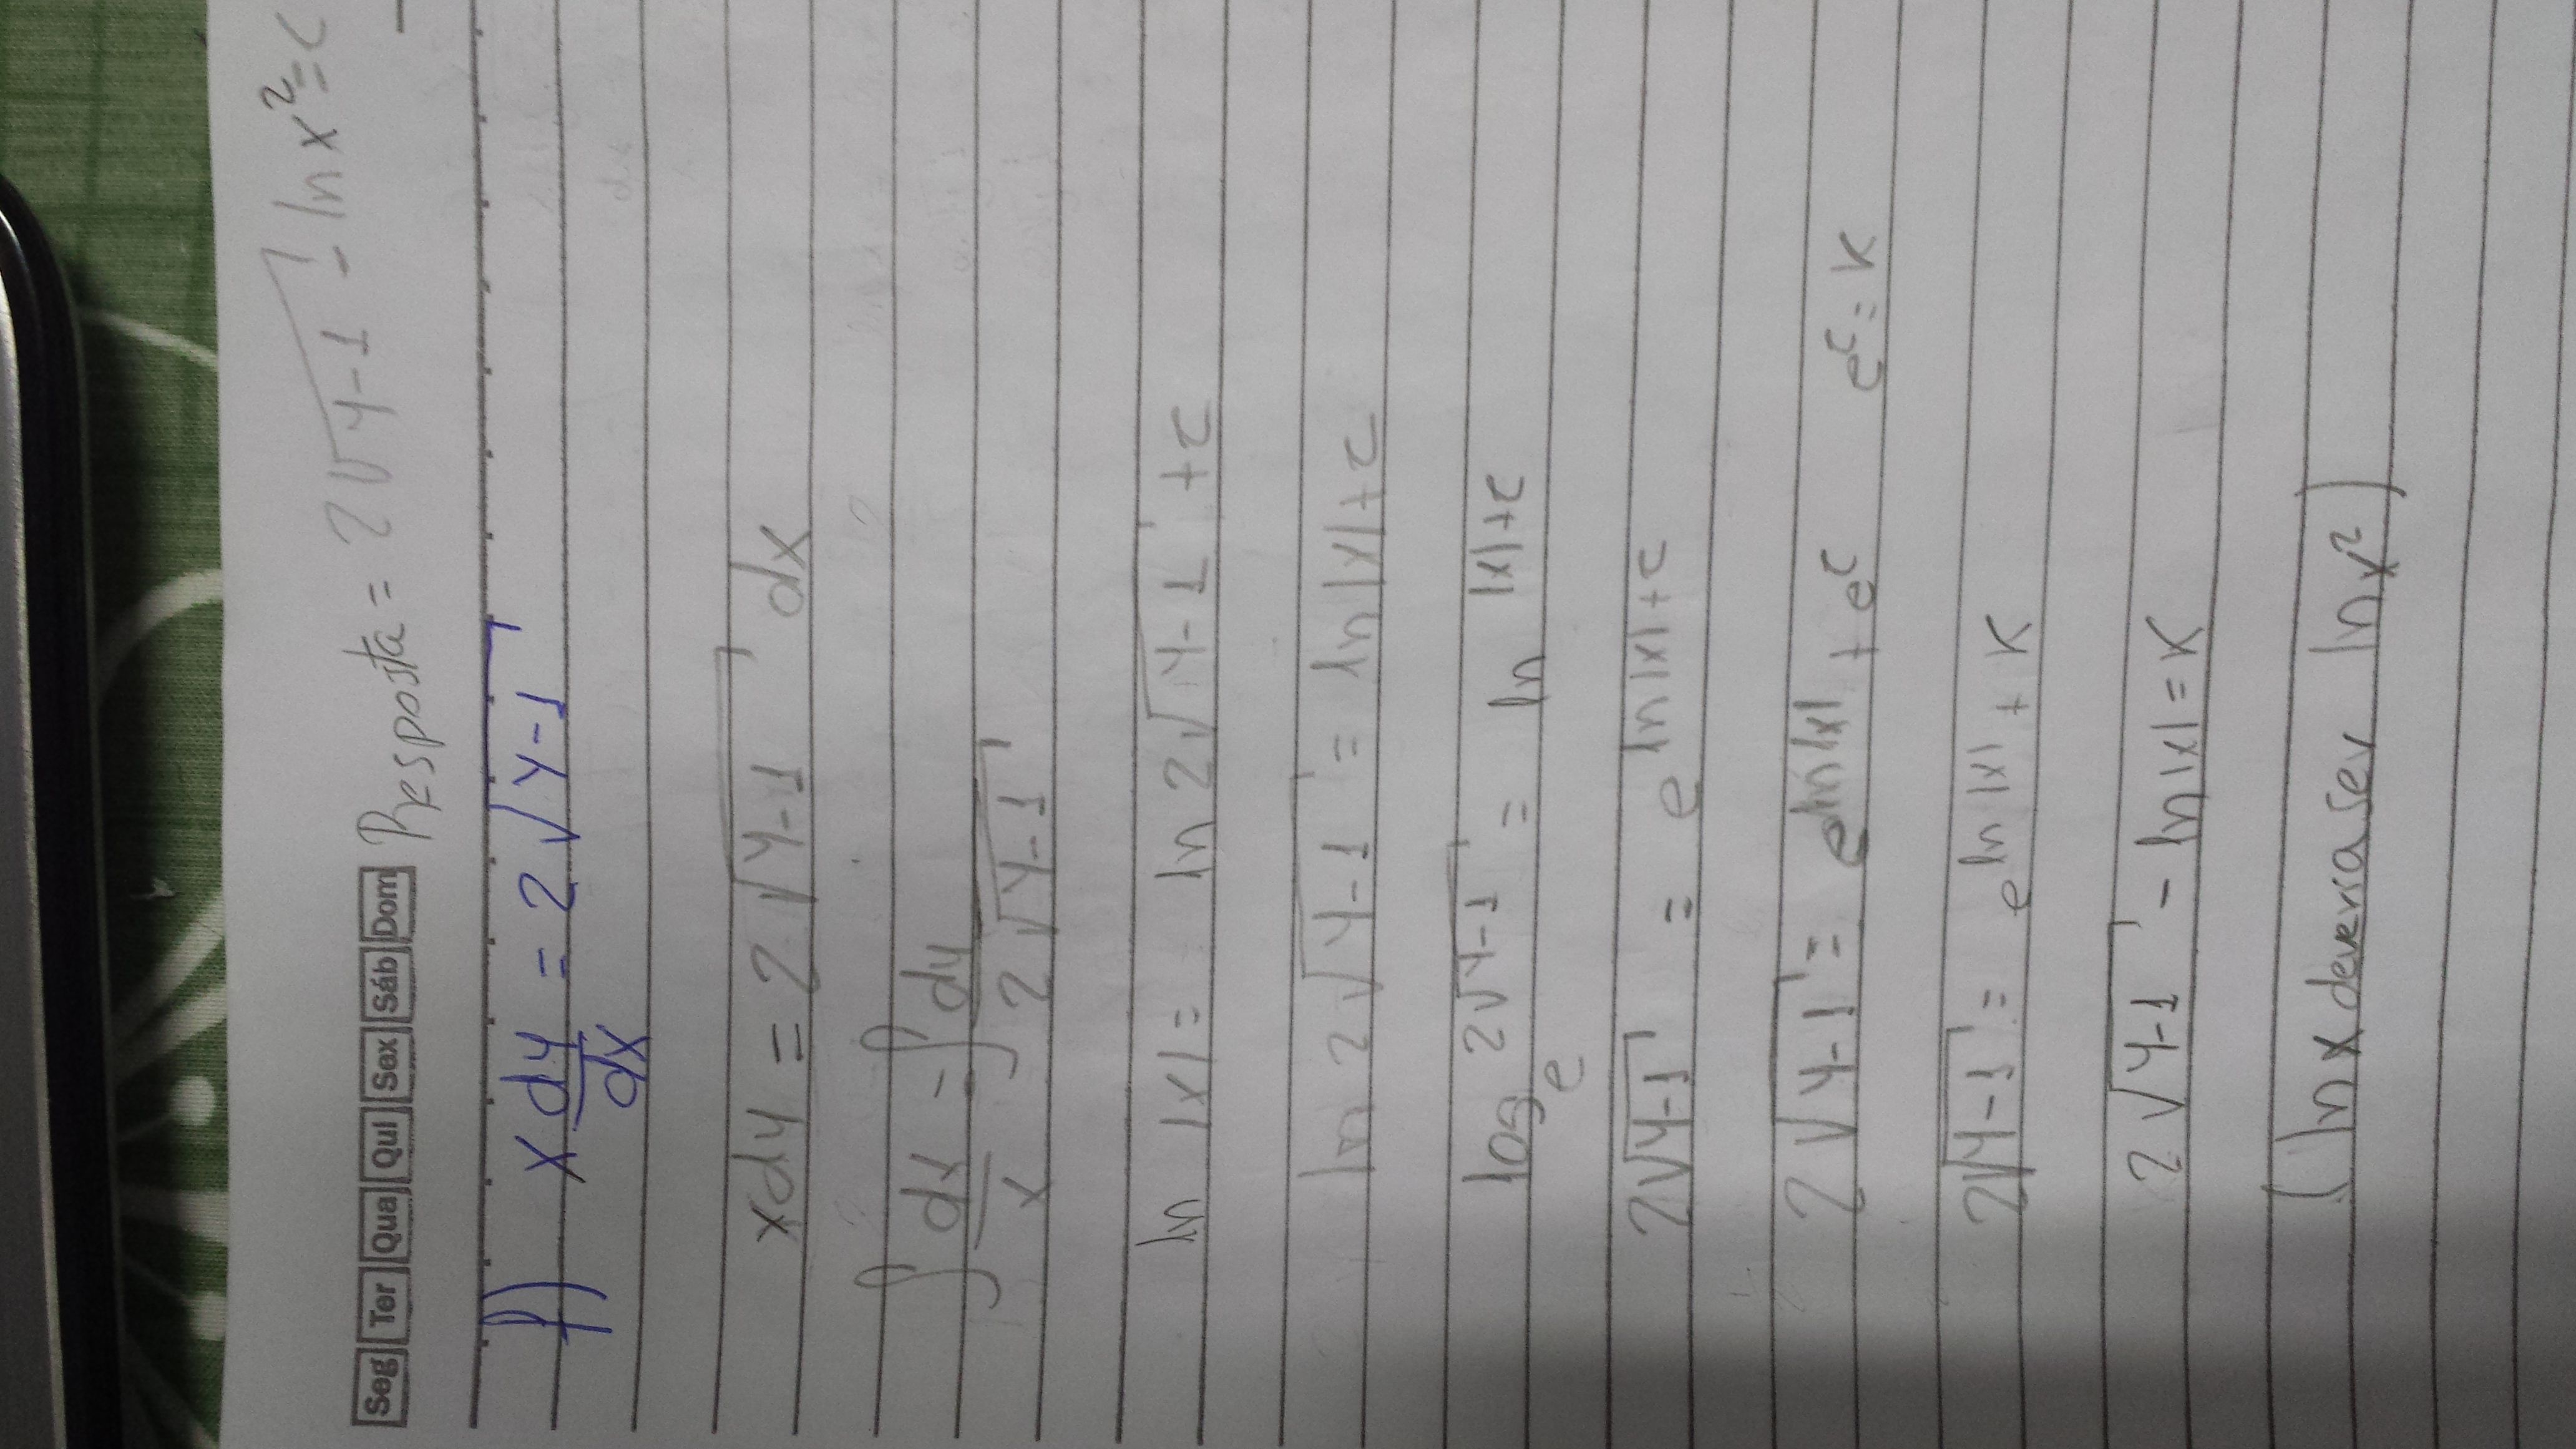 Seg Ter Qua Qui Sex Sáb Dom Resposta = 2√y-1 - ln x² = c
f) x dy/dx = 2√y-1
x dy = 2√y-1 dx
∫ dx/x = ∫ dy/2√y-1
ln |x| = ln 2√y-1 + c
ln 2√y-1 = ln|x| + c
log e 2√y-1 = ln |x|+c
2√y-1 = e^ln|x|+c
2√y-1 = e^ln|x| + e^c e^c = K
2√y-1 = e^ln|x| + K
2√y-1 - ln|x| = K
(ln x deveria ser ln x²)